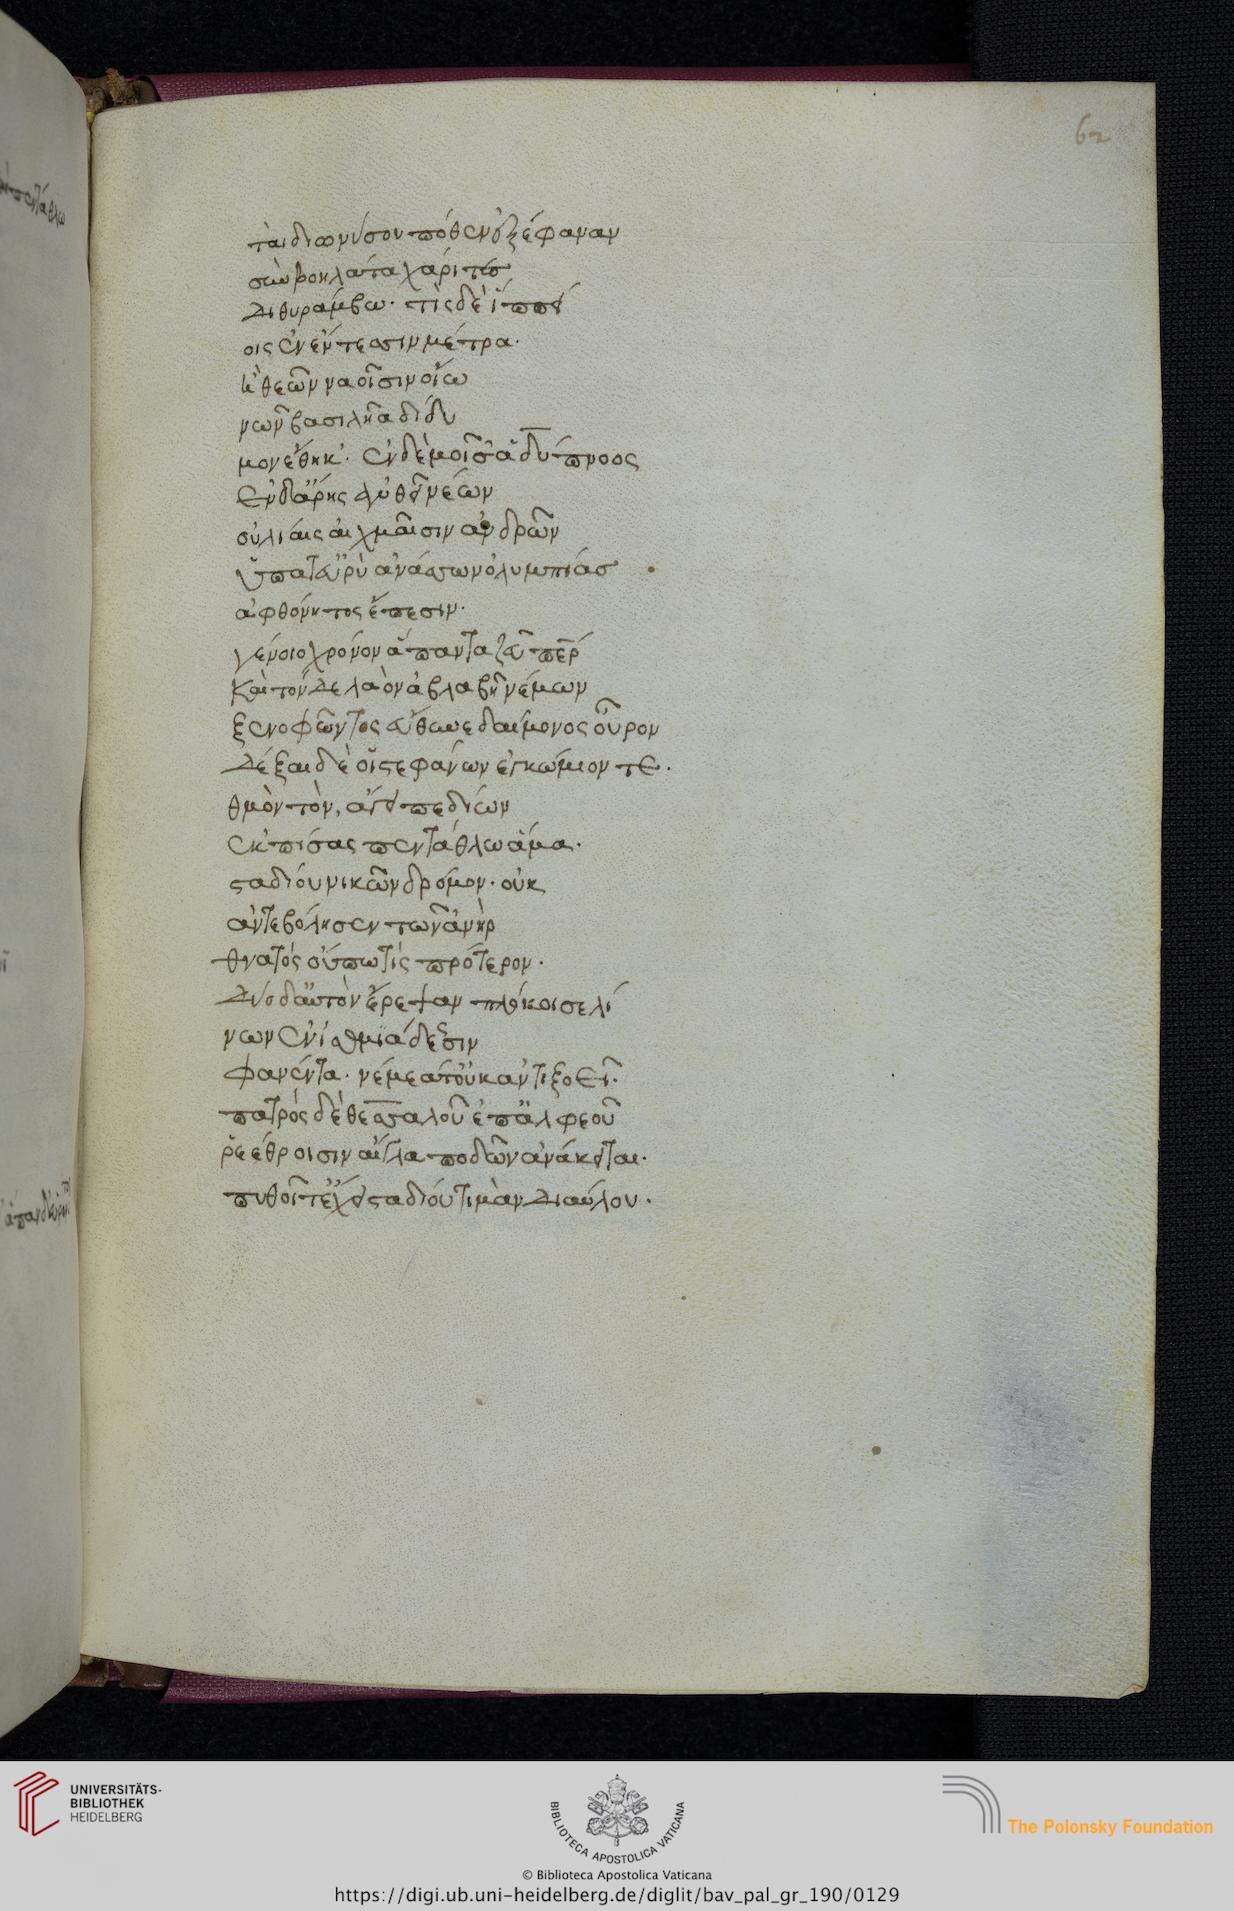 62
ταὶ διωνύσου πόθεν ἐξέφαναν
σὺν βοηλάτα χάριτες
διθυράμβω· τίς δὲ ἱππεί
οις ἐν ἔντεσσιν μέτρα·
ἢ θεῶν ναοῖσιν οἰω
νῶν βασιλῆα δίδυ
μον ἔθηκ'· ἐν δὲ μοῖσ' ἁδύπνοος
ἐν δ' ἄρης ἀνθεῖ νέων
οὐλίαις αἰχμαῖσιν ἀνδρῶν
ὕπατ' εὐρὺ ἀνάσσων ὀλυμπίας
ἀφθόνητος ἔπεσιν·
γένοιο χρόνον ἅπαντα ζεῦ πάτερ
καὶ τόνδε λαὸν ἀβλαβῆ νέμων
ξενοφῶντος εὔθυνε δαίμονος οὖρον
δέξαι δέ οἱ στεφάνων ἐγκώμιον τε·
θμὸν τὸν, ἄγει πεδίων
ἐκ πίσας πεντάθλω ἅμα·
σταδίου νικῶν δρόμον· οὐκ
ἀντεβόλησεν τῶν ἀνὴρ
θνατὸς οὔπω τὶς πρότερον·
δύο δ' αὐτὸν ἔρεψαν πλόκοι σελί
νων ἐν ἰσθμϊάδεσσιν
φανέντα· νέμεά τ' οὐκ ἀντιξοεῖ·
πατρὸς δὲ θεσσαλοῦ ἐπ' ἀλφεοῦ
ῥεέθροισιν αἴγλα ποδῶν ἀνάκειται·
πυθοῖ τ' ἔχει σταδίου τιμὰν διαύλου·
UNIVERSITÄTS-
BIBLIOTHEK
HEIDELBERG
BIBLIOTECA APOSTOLICA VATICANA
The Polonsky Foundation
© Biblioteca Apostolica Vaticana
https://digi.ub.uni-heidelberg.de/diglit/bav_pal_gr_190/0129